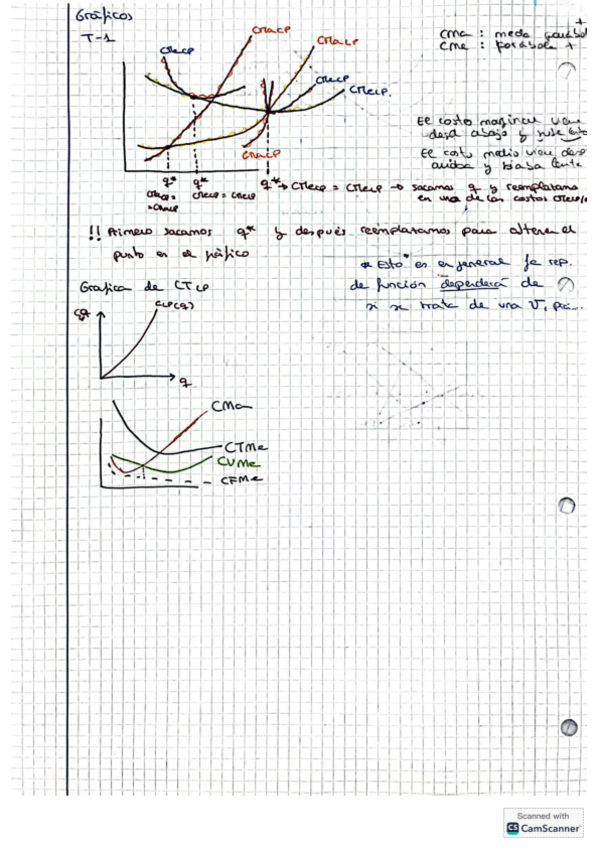 Gráficos
T-1
CMaCP
CMaLP
CMeCP
CMeCP
CMeLP.
CMaCP
q*
q*
q* → CMeCP = CMeLP → sacamos q y reemplazamos
en una de las costos CMeLP/c
CMaLP =
= CMaCP
CMeCP = CMeLP
+
CMa : media parábol
CMe : parábola +
El costo marginal viene
desd abajo y sube lento
El costo medio viene des
arriba y baja lento
!! Primero sacamos q* y después reemplazamos para obtener el
punto en el gráfico
* Esto es en general la rep.
de función dependerá de
si se trata de una
Grafica de CTLP
CLP(q)
q
CMa
CTMe
CVMe
CFMe
Scanned with
CS CamScanner